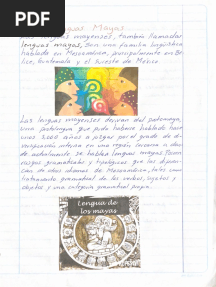 PDF
Lenguas Mayas
Las lenguas mayenses, también llamadas
lenguas mayas, son una familia lingüística
hablada en Mesoamérica, principalmente en Be-
lice, Guatemala y el sureste de México
Las lenguas mayenses derivan del protomaya,
una protolengua que pudo haberse hablado hace
unos 5000 años a juzgar por el grado de di-
versificación interna en una región cercana a don-
de actualmente se hablan lenguas mayas. Poseen
rasgos gramaticales y tipológicos que las diferen-
cian de otros idiomas de Mesoamérica, tales como
tratamiento gramatical de los verbos, sujetos y
objetos y una categoría gramatical propia.
Lengua de
los mayas